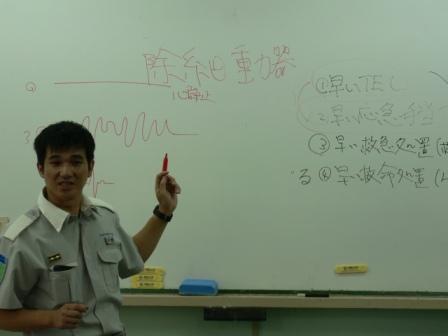 除細動器
心静止
①早いTEL
②早い応急手当
③早い救急処置(
る ④早い救命処置(